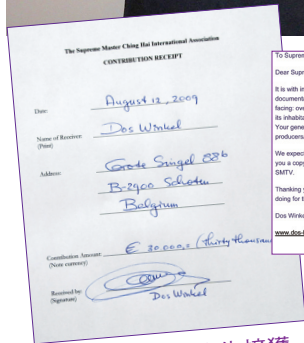 The Supreme Master Ching Hai International Association
CONTRIBUTION RECEIPT
Date: August 12, 2009
Name of Receiver: Dos Winkel
(Print)
Address: Grote Singel 88b
B-2900 Schoten
Belgium
Contribution Amount: € 30.000,= (thirty thousand
(Note currency)
Received by:
(Signature)
Dos Winkel
To Suprem
Dear Supr
It is with in
documenta
facing: ove
its inhabita
Your gene
producers
We expec
you a copy
SMTV.
Thanking y
doing for t
Dos Winke
www.dos-